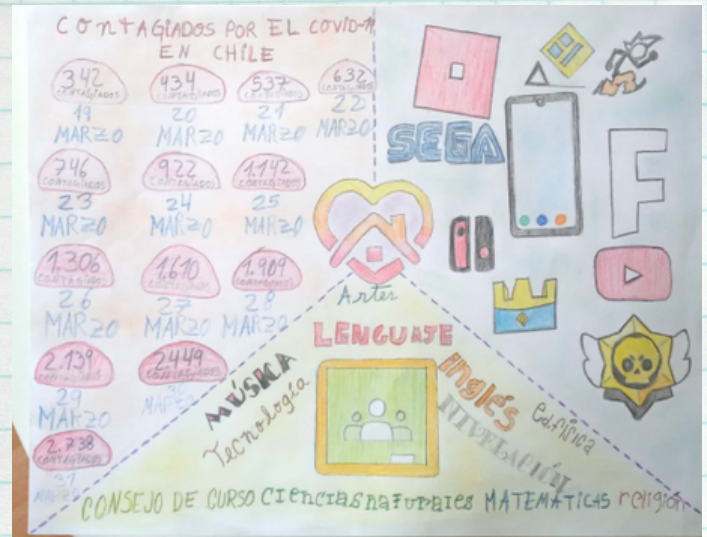 CONTAGIADOS POR EL COVID-19
EN CHILE
342 CONTAGIADOS
19 MARZO
434 CONTAGIADOS
20 MARZO
537 CONTAGIADOS
21 MARZO
632 CONTAGIADOS
22 MARZO
746 CONTAGIADOS
23 MARZO
922 CONTAGIADOS
24 MARZO
1.142 CONTAGIADOS
25 MARZO
1.306 CONTAGIADOS
26 MARZO
1.610 CONTAGIADOS
27 MARZO
1.909 CONTAGIADOS
28 MARZO
2.139 CONTAGIADOS
29 MARZO
2449 CONTAGIADOS
30 MARZO
2.738 CONTAGIADOS
31 MARZO
SEGA
F
Artes
LENGUAJE
MÚSICA
Tecnología
inglés
NIVELACIÓN
ed.física
CONSEJO DE CURSO Ciencias naturales MATEMÁTICAS religión